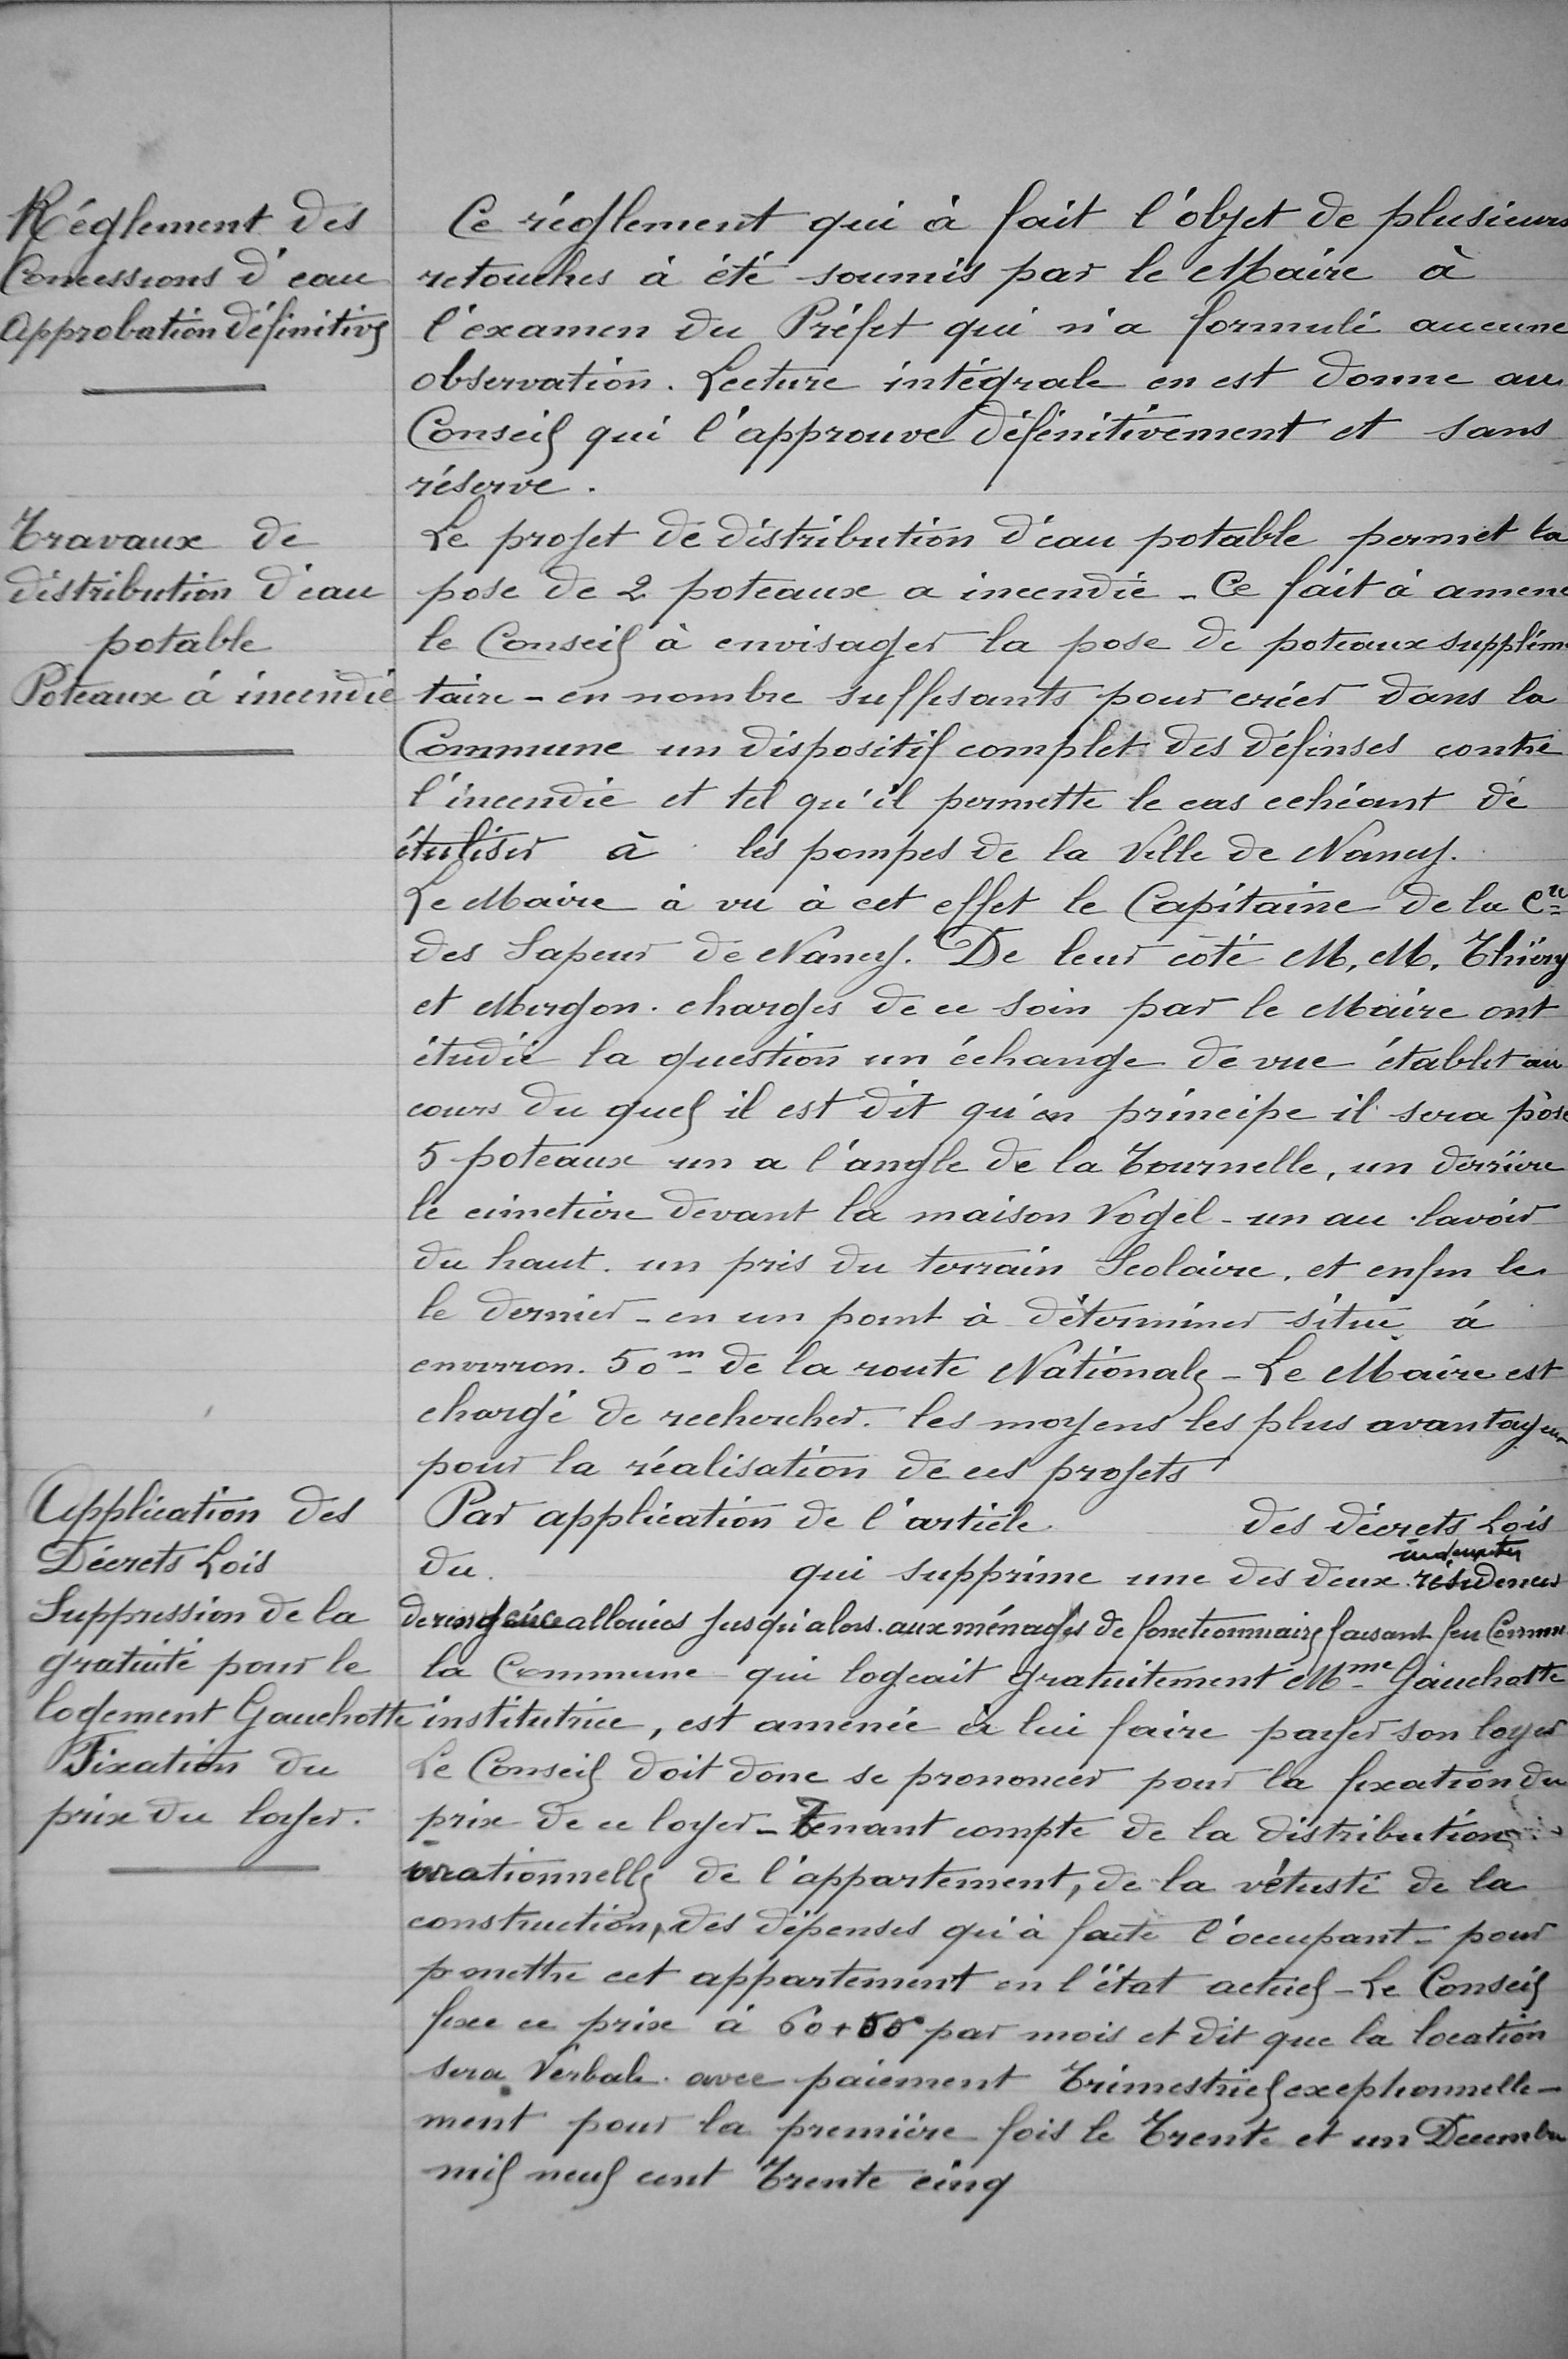 Réglement des
Concessions d'eau
Approbation définitive
Ce réglement qui à fait l'objet de plusieurs
retouches à été soumis par le Maire à
l'examen du Préfet qui n'a formulé aucune
observation. Lecture intégrale en est donne au
Conseil qui l'approuve définitivement et sans
réserve.
Travaux de
distribution d'eau
potable
Poteaux à incendie
Le projet de distribution d'eau potable permet la
pose de 2 poteaux a incendie - Ce fait à amené
le Conseil à envisager la pose de poteaux supplém
taire - en nombre suffisants pour créer dans la
Commune un dispositif complet des défenses contre
l'incendie et tel qu'il permette le cas echéant de
à les pompes de la Ville de Nancy.
Le Maire à vu à cet effet le Capitaine de la Cie
des Sapeur de Nancy. De leur côté M. M. Thiéry
et Mergon. charges de ce soin par le Maire ont
étudié la question un échange de vue établet au
cours du quel il est dit qu'en principe il sera posé
5 poteaux un a l'angle de la Tournelle, un derrière
le cimetière devant la maison Vogel - un au lavoir
du haut. un près du terrain Scolaire. et enfin le
le dernier - en un point à déterminer situé à
environ. 50m de la route Nationale - Le Maire est
chargé de rechercher. les moyens les plus avantageux
pour la réalisation de ces projets
Application des
Décrets Lois
Suppression de la
gratuité pour le
logement Gauchotte
Fixation du
prix du loyer.
Par application de l'article des décrets Lois
du. qui supprime une des deux indemnités
allouées jusqu'alors. aux ménages de fonctionnaire faisant feu Commun
la Commune qui logeait gratuitement Mme Gauchotte
institutrice, est amenée à lui faire payer son loyer
Le Conseil doit donc se prononcer pour la fixation du
prix de ce loyer - Tenant compte de la distribution
irrationnelle de l'appartement, de la vétusté de la
construction, des dépenses qu'à faite l'occupant - pour
mettre cet appartement en l'état actuel - Le Conseil
fixe ce prix à par mois et dit que la location
sera Verbale. avec paiement Trimestriel exeptionnelle-
ment pour la première fois le Trente et un Decembre
mil neuf cent Trente cinq